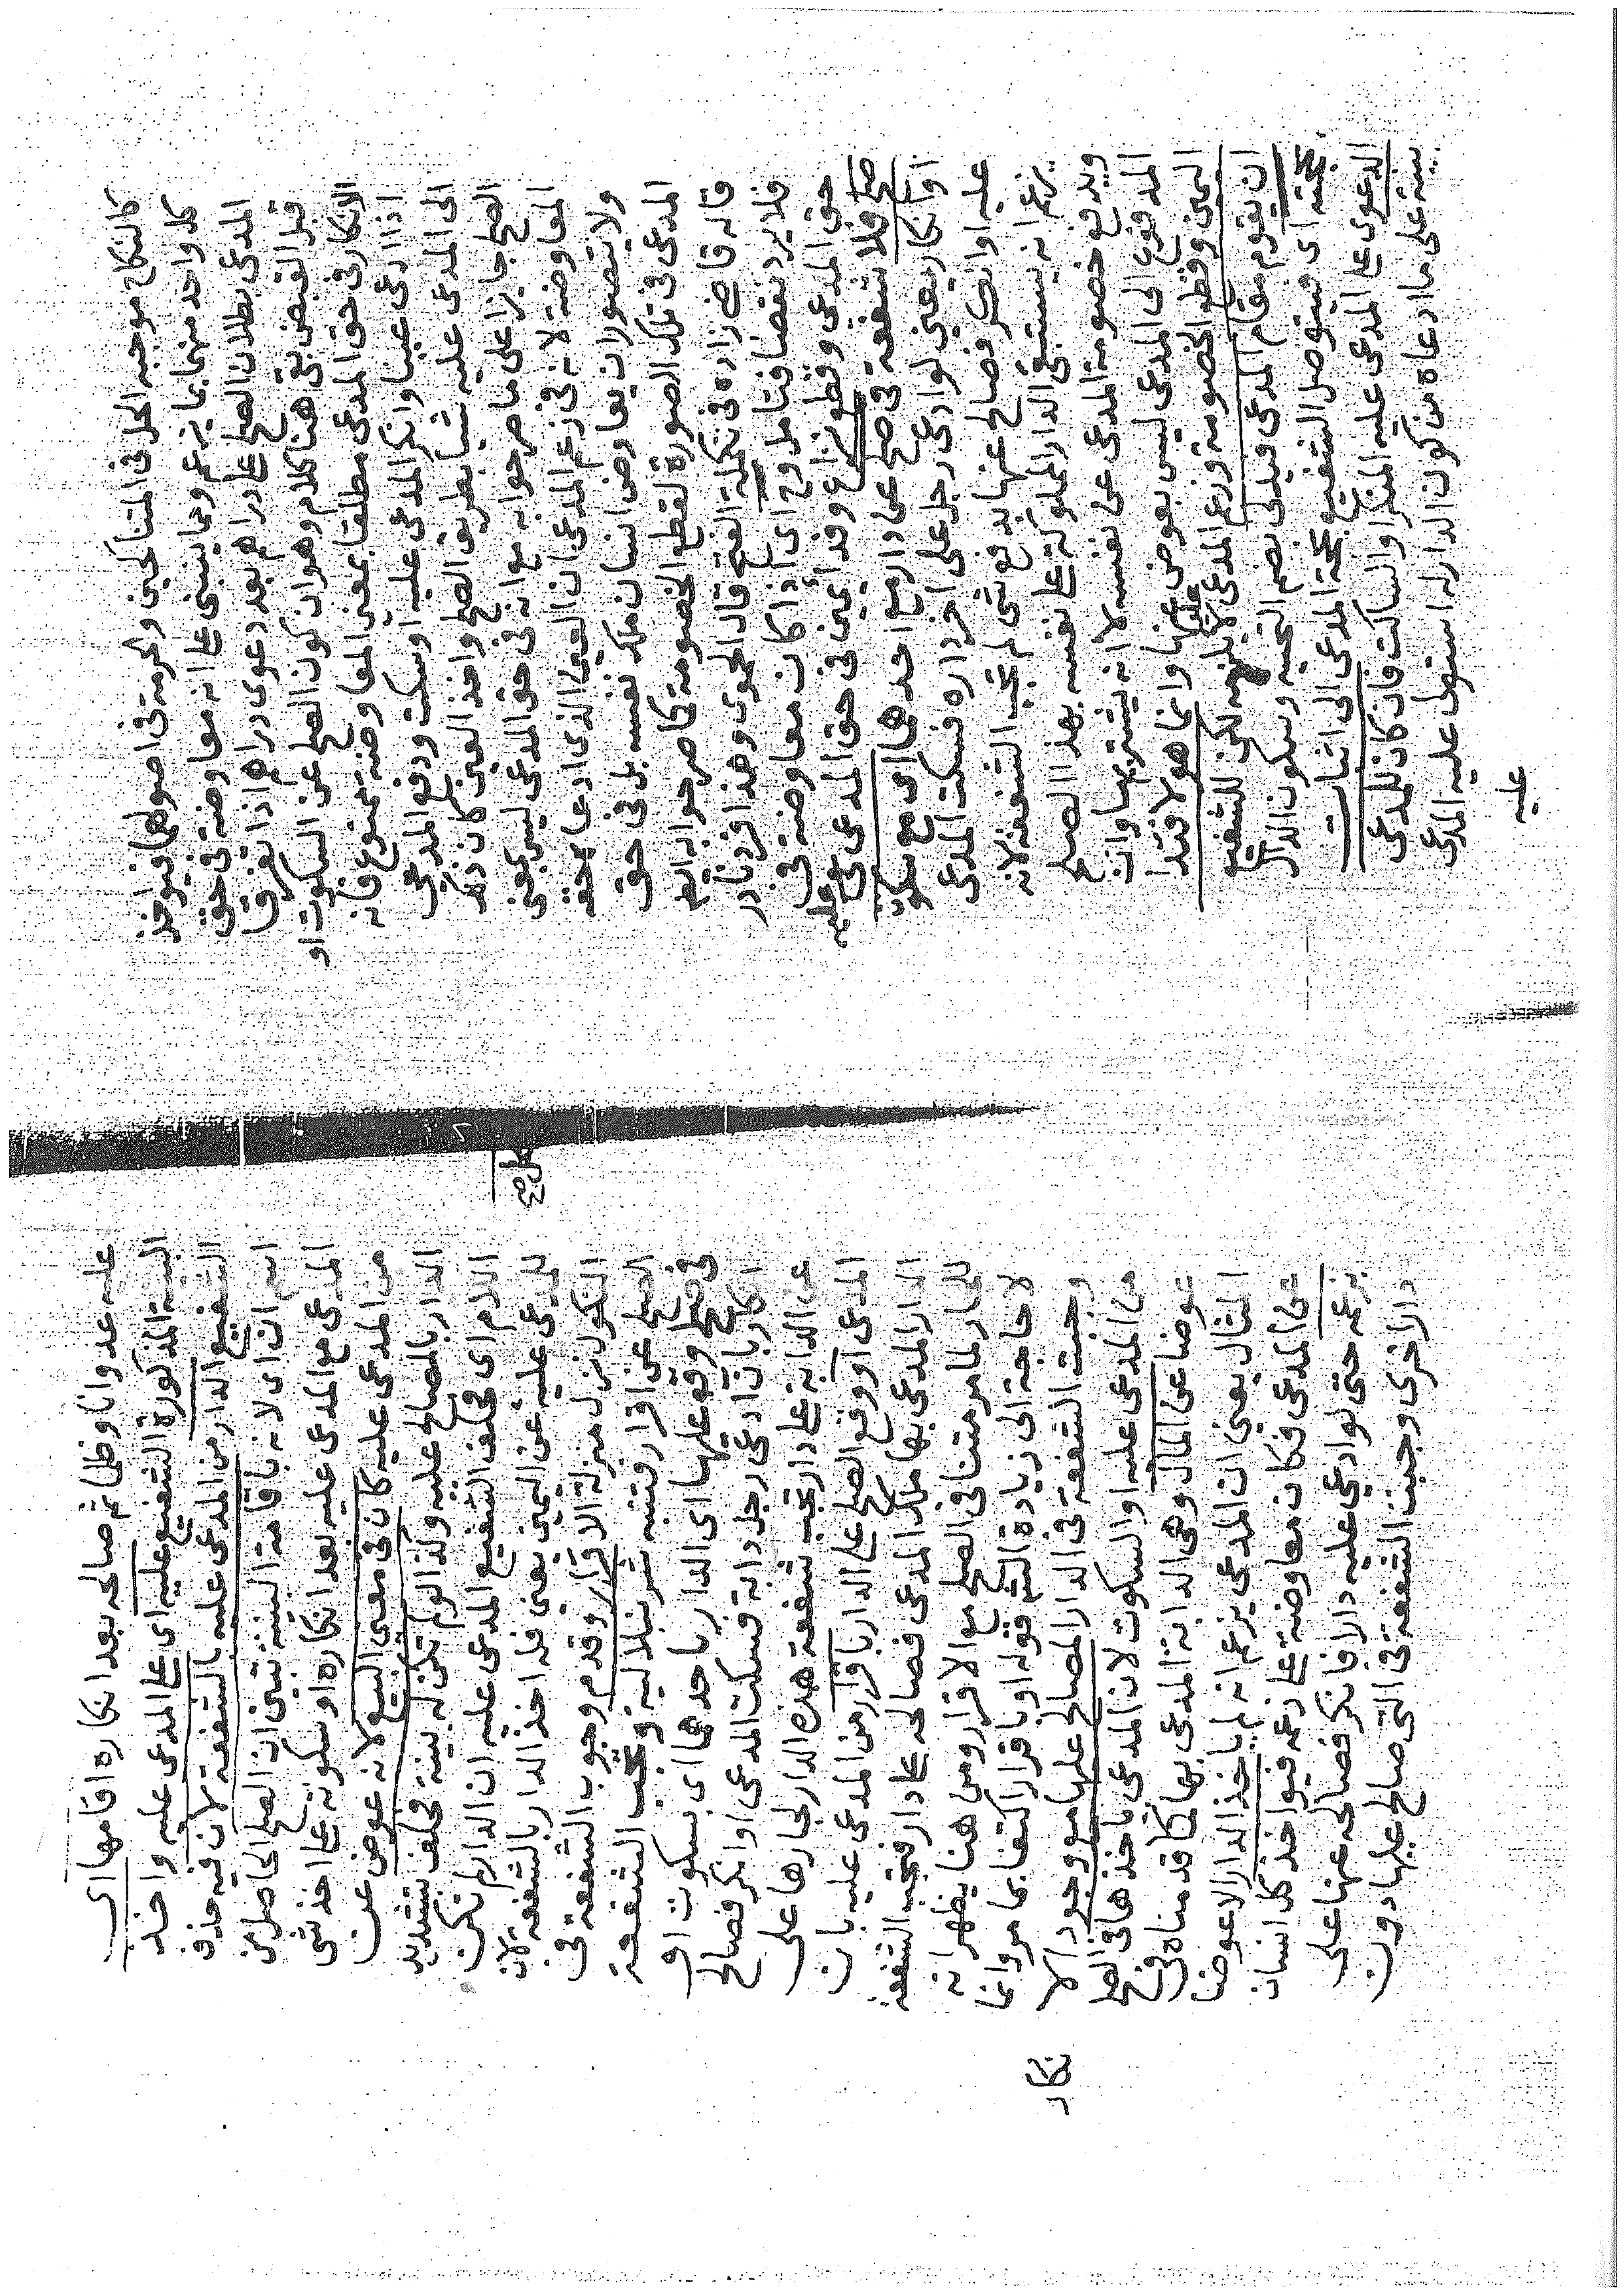 كالنكاح موجبه الحل في المتناكحين والحرمة في اصولهما فيواخذ
كل واحد منهما بما يزعم ومما يبتنى على انه معاوضة في حق
المدعى بطلان الصلح على دراهم بعد دعوى دراهم اذا تفرقا
قبل القبض بقى هنا كلام وهو ان كون الصلح عن السكوت او
الانكار في حق المدعى مطلقا بمعنى المعاوضة ممنوع فانه
اذا ادعى عينا وانكر المدعى عليه او سكت ودفع المدعى
الى المدعى عليه شيا بطريق الصلح واخذ العين كان ذلك
الصلح جايزا على ما صرحوا به مع انه في حق المدعى ليس بمعنى
المعاوضة لانه في زعم المدعى ان العين الذى ادعاها حقه
ولا يتصور ان يعاوض انسان ملك نفسه بل في حق
المدعى في تلك الصورة لقطع الخصومة كما صرحوا به ايضا
قاله قاضى زاده في تكملة الفتح قال الحموى وهذا فرد نادر
فلا يرد نقضا فتامل وح اى اذا كان معاوضة في
حق المدعى وقطع نزاع وفدا يمين في حق المدعى عليه
فلا شفعة في صلح عن دار مع احدهما اى مع سكوت
او انكار يعنى لو ادعى رجل على اخر داره فسكت المدعى
عليه او انكر فصالح عنها بدفع شى لم تجب الشفعة لانه
يزعم انه يستبقى الدار المملوكة على نفسه بهذا الصلح
ويدفع خصومة المدعى عن نفسه لا انه يشتريها وان
المدفوع الى المدعى ليس بعوض عنها وانما هو لافتدا
اليمين وقطع الخصومة وزعم المدعى لا يلزمه لكن للشفيع
ان يقوم مقام المدعى فيدلى بضم التحتية وسكون الدال
بحجته اى فيتوصل الشفيع بحجة المدعى الى اثبات
الدعوى على المدعى عليه المنكر والساكت فان كان للمدعى
بينة على ما ادعاه من كون الدار له استولى عليه المدعى
عليه
عليه عدوانا وظلما ثم صالحه بعد انكاره اقامها اى
البينة المذكورة الشفيع عليه اى على المدعى عليه واخذ
الشفيع الدار من المدعى عليه بالشفعة لان فيه حذف
اسم ان اى لانه باقامة البينة تبين ان الصلح الحاصل من
المدعى مع المدعى عليه بعد انكاره او سكوته على اخذ شى
من المدعى عليه كان في معنى البيع لانه عوض عن
الدار بالمصالح عليه وكذا لو لم تكن له بينة فحلف بتشديد
اللام اى فحلف الشفيع المدعى عليه ان الدار لم تكن
للمدعى عليه عن اليمين يعنى فله اخذ الدار بالشفعة لان
النكول نزل منزلة الاقرار وقدم وجوب الشفعة في
الصلح عن اقرار فتنبه شرنبلالية وتجب الشفعة
في صلح وقع عليها اى الدار باحدهما اى بسكوت او
انكار بان ادعى رجل دابة فسكت المدعى او انكر فصالح
عن الدابة على دار تجب شفعة هذه الدار لجارها على
المدعى او وقع الصلح على الدار باقرار من المدعى عليه بان
الدار المدعى بها ملك المدعى فصالحه على دار فتجب الشفعة
للجار لما مر متنا في الصلح مع الاقرار ومن هنا يظهر انه
لا حاجة الى زيادة الشم قوله او باقرار اكتفا بما مر وانما
وجبت الشفعة في الدار المصالح عليها مع وجود الا
نكار
من المدعى عليه او السكوت لان المدعى ياخذها في الصلح
عوضا عن المال وهى الدابة المدعى بها كما قدمناه في
المثال يعنى ان المدعى يزعم انه لم ياخذ الدار الا عوضا
عن المدعى فكان معاوضة على زعمه فيواخذ كل انسان
بزعمه حتى لو ادعى عليه دارا فانكر فصالحه عنها على
دار اخرى وجبت الشفعة في التى صالح عليها دون